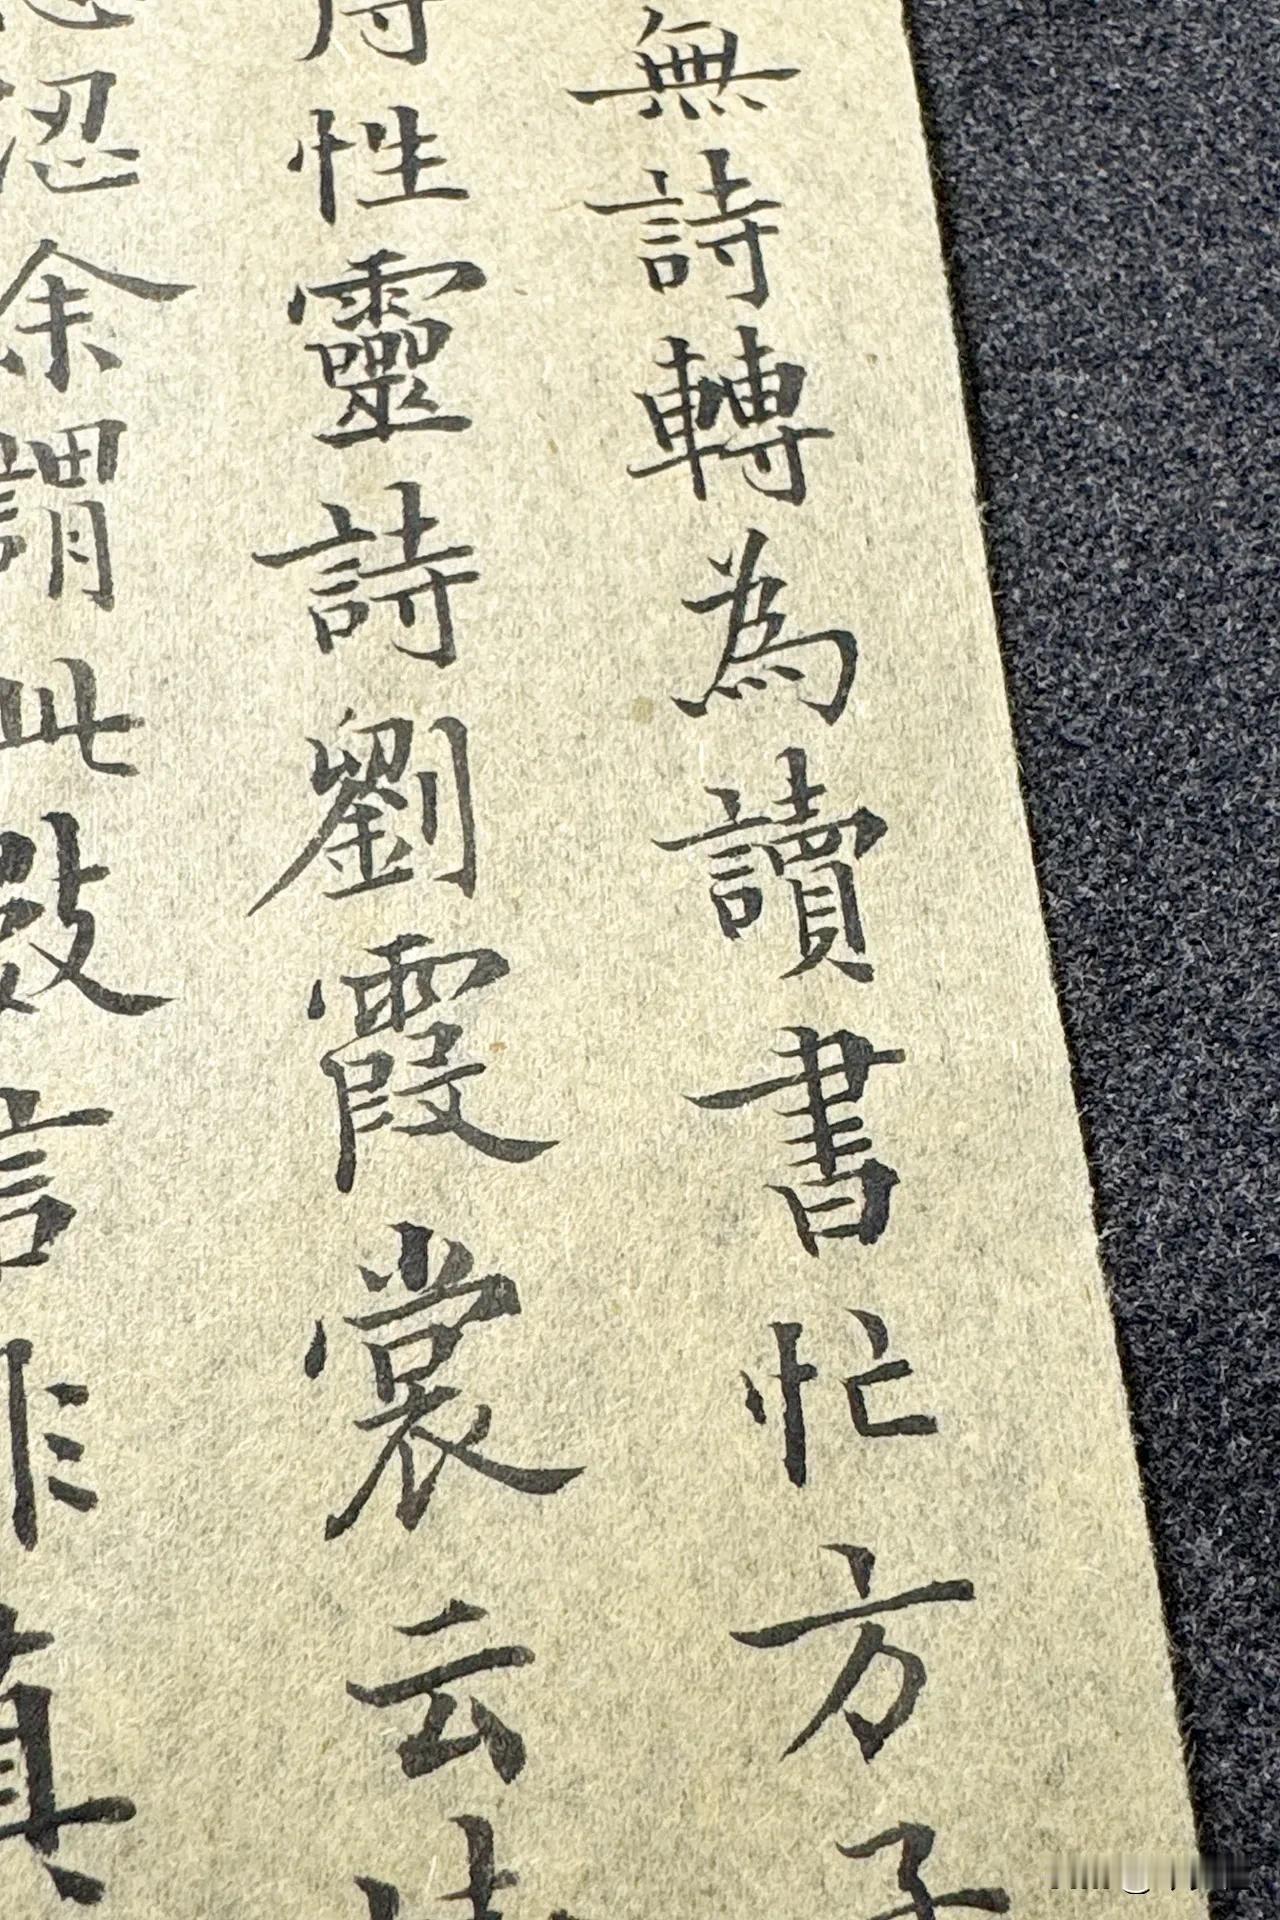 無詩轉為讀書忙方子
得性靈詩劉霞裳云
忍余謂此數言非真